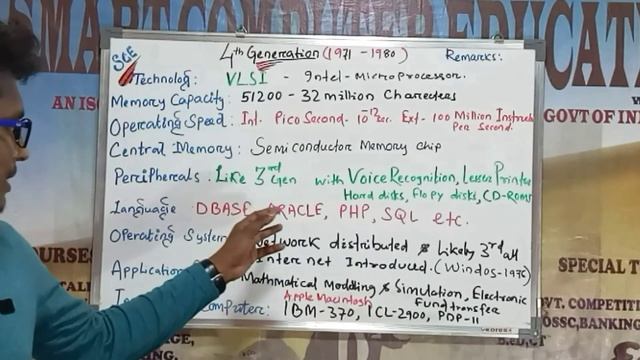 SMART COMPUTER EDUCATION
AN ISO
GOVT OF IN
SGE
4th Generation (1971 - 1980)
Remarks:
Technology: VLSI - Intel - Microprocessor.
Memory Capacity: 51200 - 32 million Charectees
Operating Speed: Int. Pico Second. 10⁻¹² Sec. Ext - 100 Million Instruct
Per Second.
Central Memory: Semiconductor Memory chip
Peripherals. Like 3rd Gen with Voice Recognition, Leser Printer
Hard disks, Flopy disks, CD-Roms
Language DBASE, ORACLE, PHP, SQL etc.
Operating System Network distributed & Likely 3rd all
Internet Introduced. (Windos-1976)
Application Mathmatical Modding & Simulation, Electronic
Fund transfee
Apple Macintosh
Computer: IBM-370, ICL-2900, PDP-11
COURSES
SPECIAL T
TALL
BREAKING,
ENGINEERING
VT. COMPETITI
OSSC, BANKING
B.ED, CT